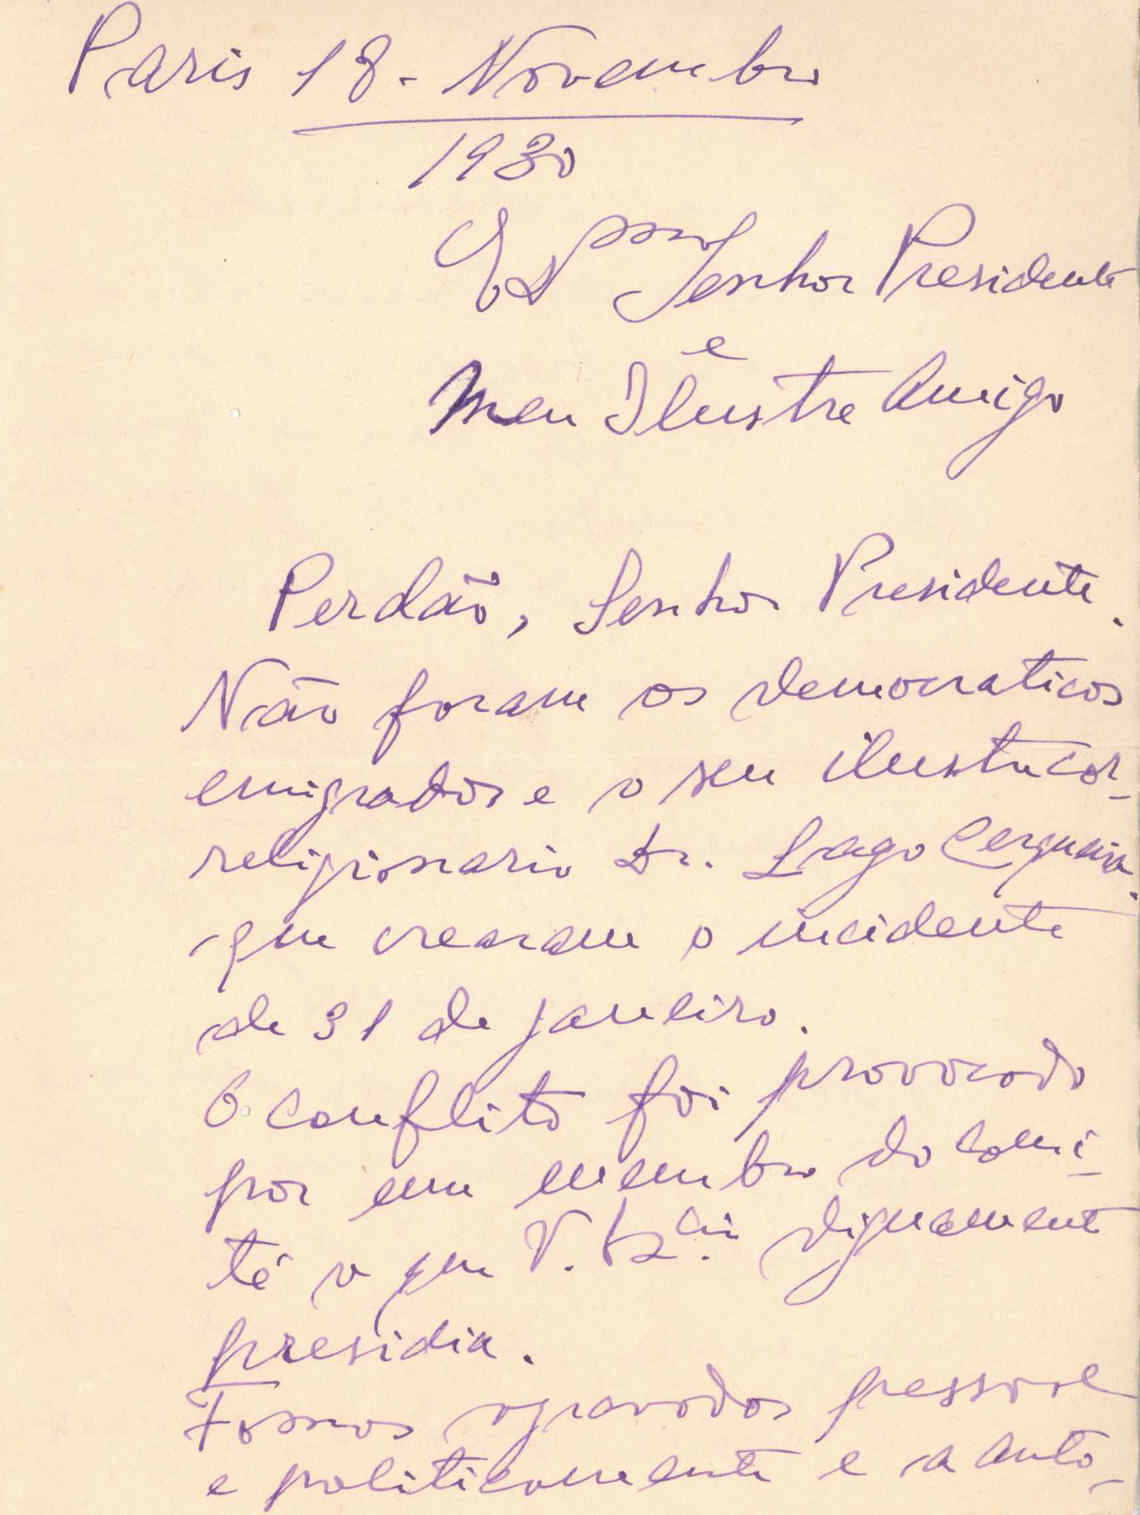 Paris 18 - Novembro
1930
Exmo Senhor Presidente
e
Meu Ilustre Amigo
Perdão, Senhor Presidente.
Não foram os democraticos
emigrados e o seu ilustre cor-
religionario Dr. Lago Cerqueira
que crearam o incidente
de 31 de janeiro.
O conflito foi provocado
por um membro do Comi-
té a que V. Excia. dignamente
presidia.
Fomos agravados pessoal
e politicamente e a auto-